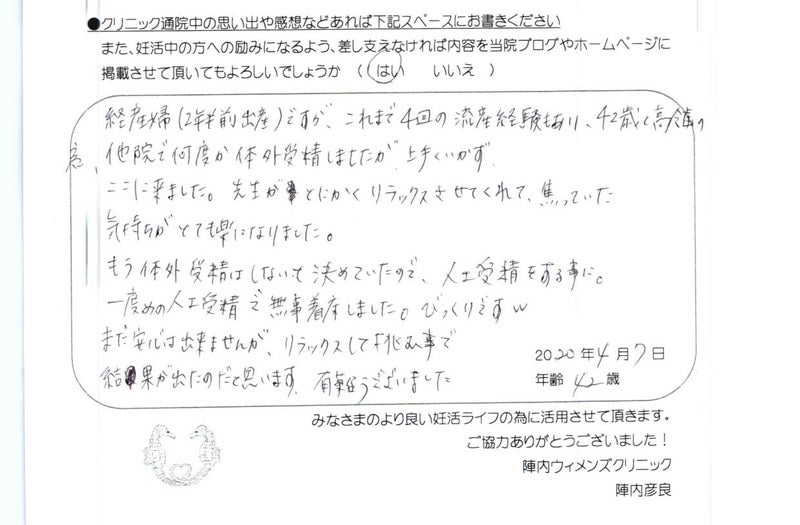 ●クリニック通院中の思い出や感想などあれば下記スペースにお書きください
また、妊活中の方への励みになるよう、差し支えなければ内容を当院ブログやホームページに
掲載させて頂いてもよろしいでしょうか （ はい　いいえ ）
経産婦(2年半前出産)ですが、これまで4回の流産経験もあり、42歳と高齢の
為、他院で何度か体外受精しましたが上手くいかず
ここに来ました。先生がとにかくリラックスさせてくれて、焦っていた
気持ちがとても楽になりました。
もう体外受精はしないと決めていたので、人工受精をする事に。
一度めの人工受精で無事着床しました。びっくりですw
まだ安心は出来ませんが、リラックスして挑む事で
結果が出たのだと思います。有難うございました
2020年4月7日
年齢 42歳
みなさまのより良い妊活ライフの為に活用させて頂きます。
ご協力ありがとうございました！
陣内ウィメンズクリニック
陣内彦良